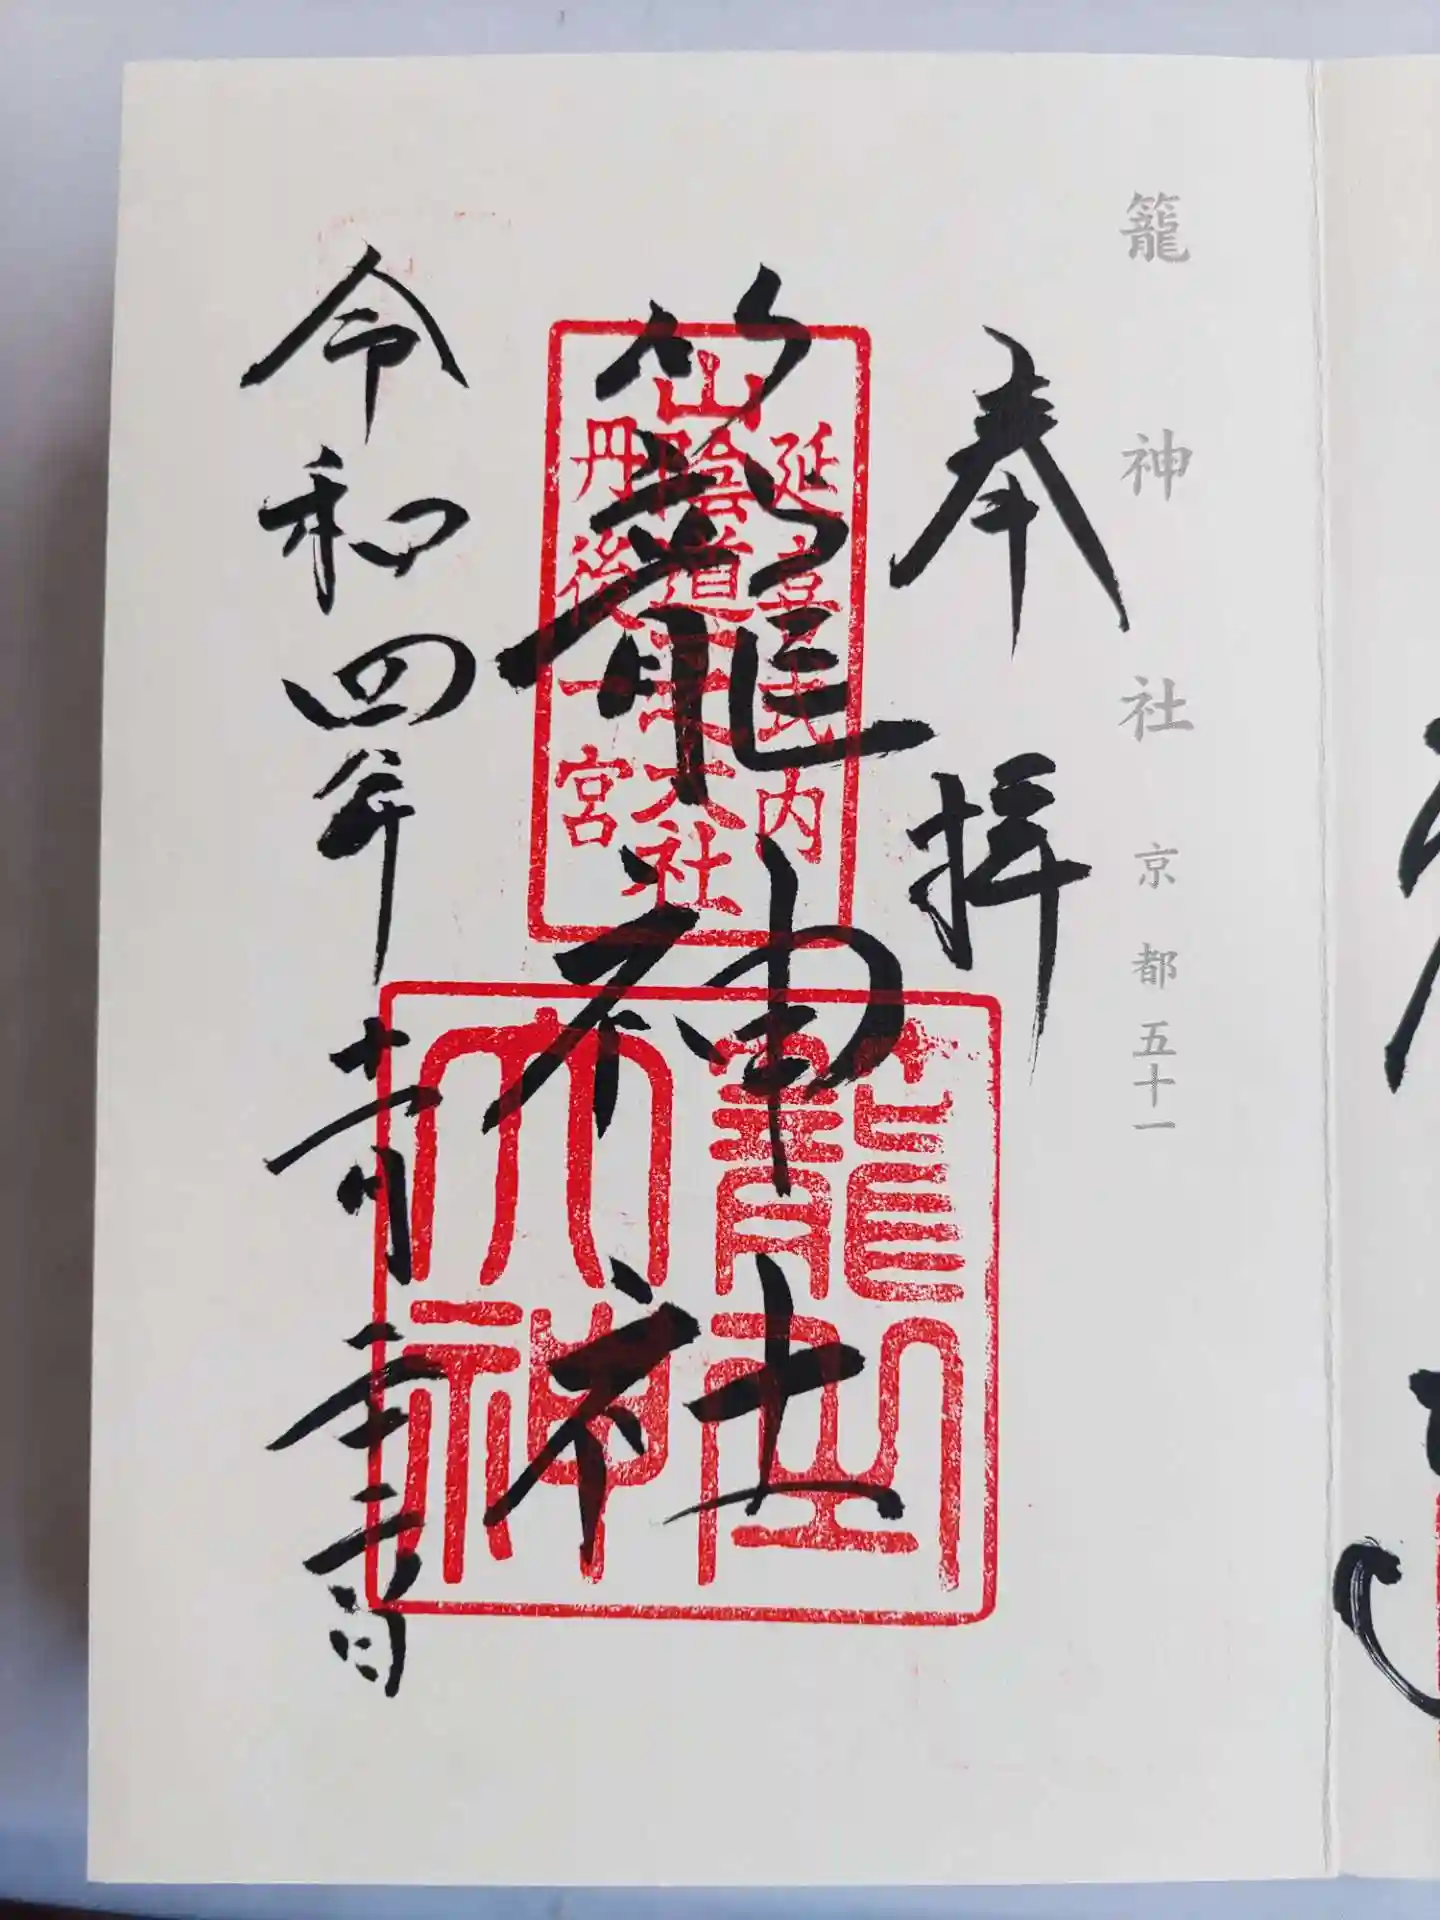 籠神社 京都五十一
奉拝
延喜式内
山陰道一之大社
丹後一宮
籠神社
令和四年十一月